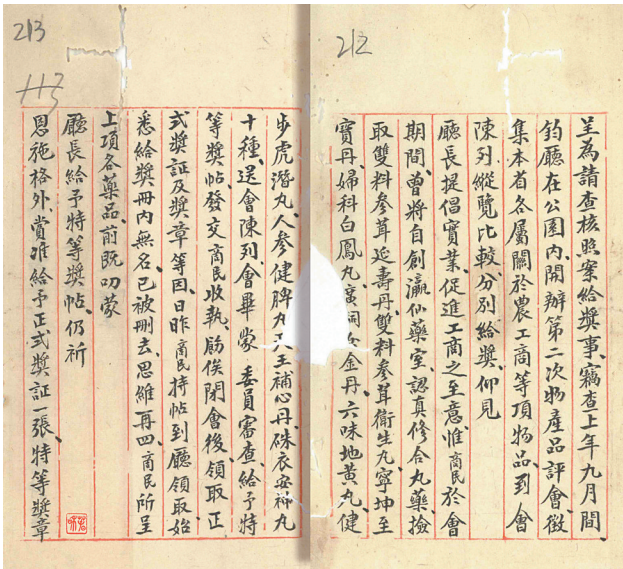 212
呈為請查核照案給獎事、竊查上年九月間、
鈞廳在公園内開辦第二次物產品評會徵
集本省各屬關於農工商等項物品到會
陳列縱覽比較分別給獎、仰見
廳長提倡實業、促進工商之至意、惟商民於會
期間、曾將自創瀛仙藥室、認真修合丸藥撿
取雙料參茸延壽丹、雙料參茸衛生丸、寧坤至
寶丹、婦科白鳳丸、廣嗣金丹、六味地黃丸、健
213
步虎潛丸、人參健脾丸、天王補心丹、硃衣安神丸
十種、送會陳列、會畢蒙 委員審查給予特
等獎帖、發交商民收執、飭俟閉會後、領取正
式獎証及獎章等因、日昨商民持帖到廳領取、始
悉給獎冊內無名、已被刪去、思維再四、商民所呈
上項各藥品、前既叨蒙
廳長給予特等獎帖、仍祈
恩施格外賞准給予正式獎証一張、特等獎章